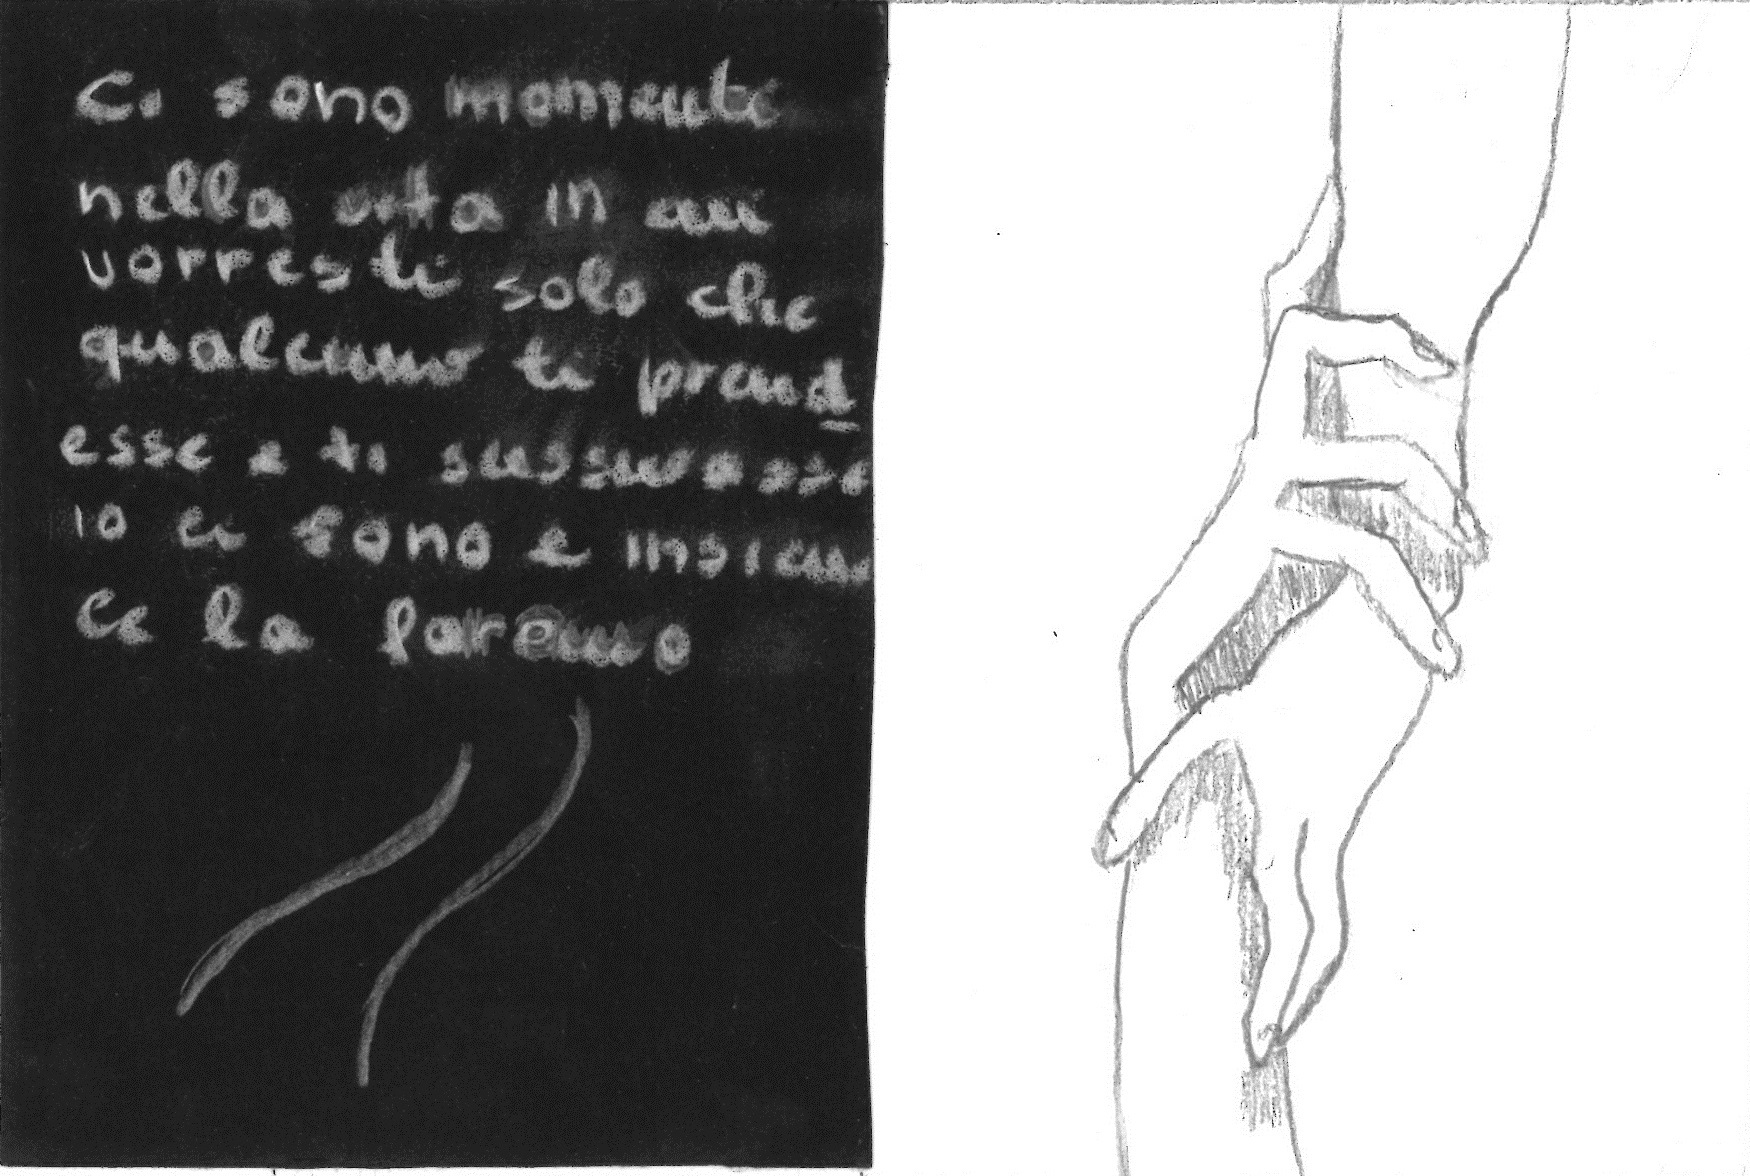 Ci sono momenti
nella vita in cui
vorresti solo che
qualcuno ti prend
esse e ti sussurasse
io ci sono e insieme
ce la faremo